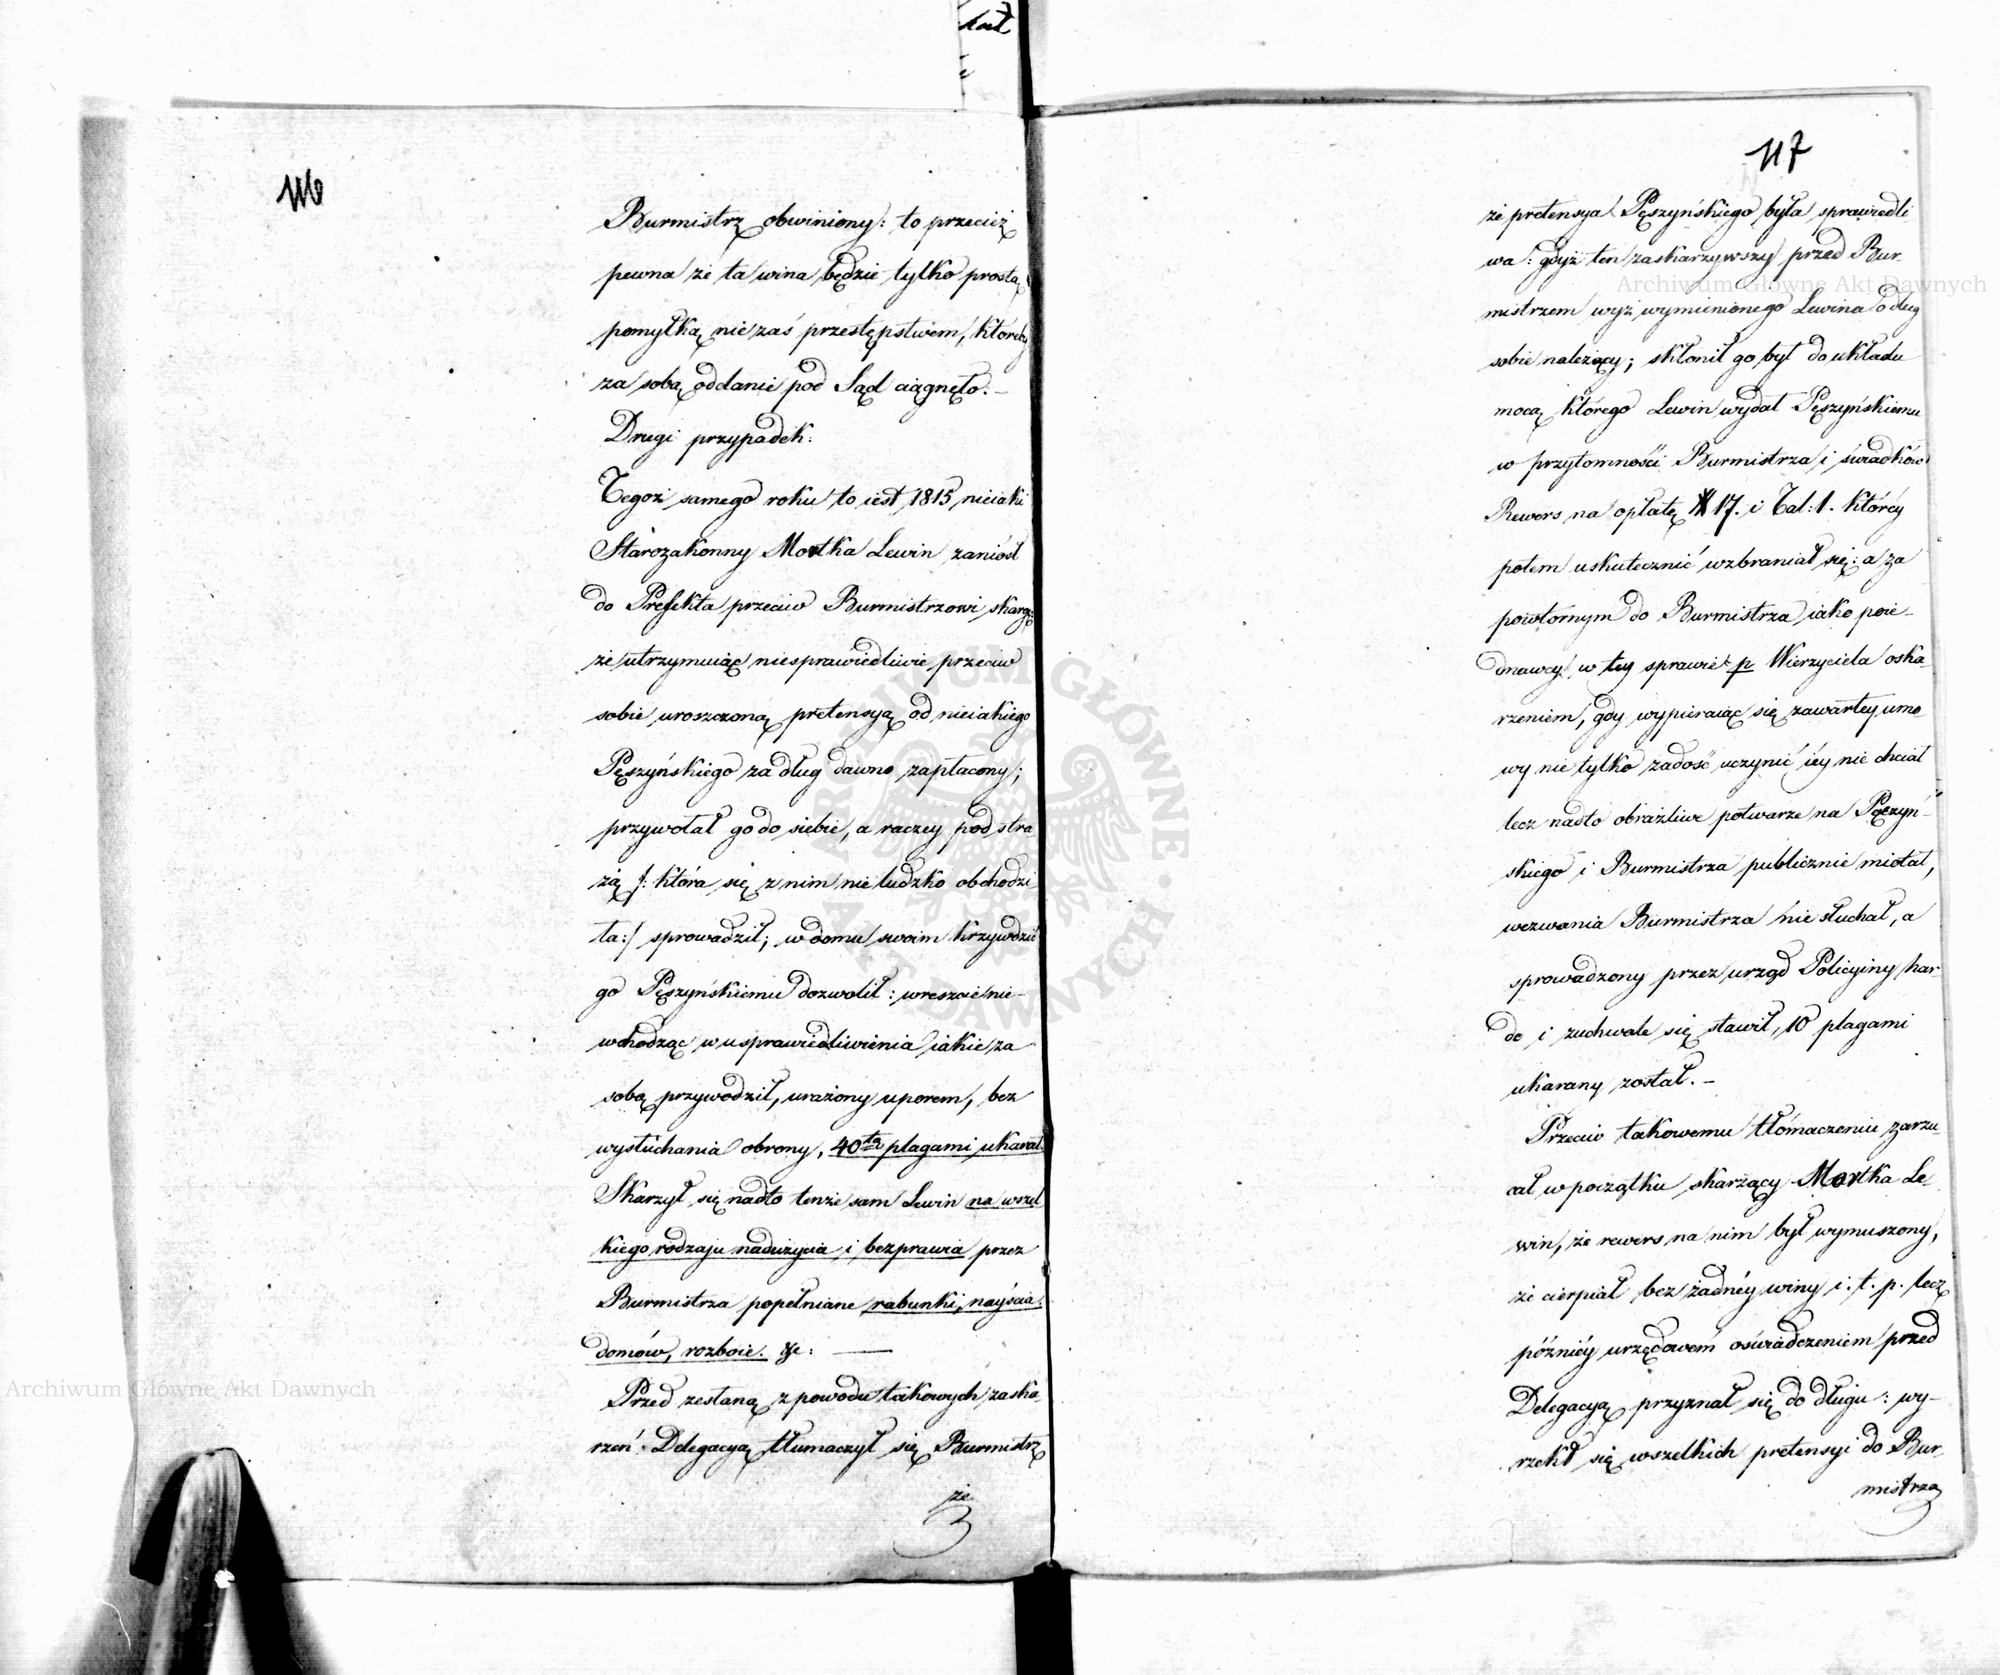 116
Burmistrz obwiniony: to przecież
pewna że ta wina będzie tylko prostą
pomyłką nie zaś przestępstwem, któreby
za sobą oddanie pod Sąd ciągnęło. –
Drugi przypadek:
Tegoż samego roku to iest 1815 nieiaki
Starozakonny Mortka Lewin zaniósł
do Prefekta przeciw Burmistrzowi skargę
że utrzymuiąc niesprawiedliwie przeciw
sobie uroszczoną pretensyą od nieiakiego
Pęszyńskiego za dług dawno zapłacony;
przywołał go do siebie, a raczey pod stra-
żą /: która się z nim nieludzko obchodzi
ła:/ sprowadził; w domu swoim krzywdzić
go Pęszyńskiemu dozwolił: wreszcie nie-
wchodząc w usprawiedliwienia iakie za
sobą przywodził, urażony uporem, bez
wysłuchania obrony, 40tą plagami ukarał.
Skarżył się nadto tenże sam Lewin na wszel
kiego rodzaju nadużycia i bezprawia przez
Burmistrza popełniane rabunki, nayścia
domów, rozboie. &c: —
Przed zesłaną z powodu takowych zaska-
rzeń Delegacyą tłumaczył się Burmistrz
że
117
że pretensya Pęszyńskiego była sprawiedli
wa: gdyż ten zaskarzywszy przed Bur-
mistrzem wyż wymienionego Lewina o dług
sobie należący; skłonił go był do układu
mocą którego Lewin wydał Pęszyńskiemu
w przytomności Burmistrza i świadków
Rewers na opłatę 17. i Tal: 1. którey
potem uskutecznić wzbraniał się: a za
powtórnym do Burmistrza iako poie-
dnawcy w tey sprawie p Wierzyciela oska-
rzeniem, gdy wypieraiąc się zawartey umo
wy nie tylko zadość uczynić iéy nie chciał
lecz nadto obraźliwe potwarze na Pęczyń-
skiego i Burmistrza publicznie miotał,
wezwania Burmistrza nie słuchał, a
sprowadzony przez urząd Policyiny har-
do i zuchwale się stawił, 10 plagami
ukarany został. –
Przeciw takowemu tłómaczeniu zarzu-
cał w początku skarżący Mortka Le-
win, że rewers na nim był wymuszony,
że cierpiał bez żadnéy winy i. t. p. lecz
późniéy urzędowém oświadczeniem przed
Delegacyą przyznał się do długu: wy-
rzekł się wszelkich pretensyi do Bur-
mistrza
Archiwum Główne Akt Dawnych
Archiwum Główne Akt Dawnych
ARCHIWUM GŁÓWNE AKT DAWNYCH